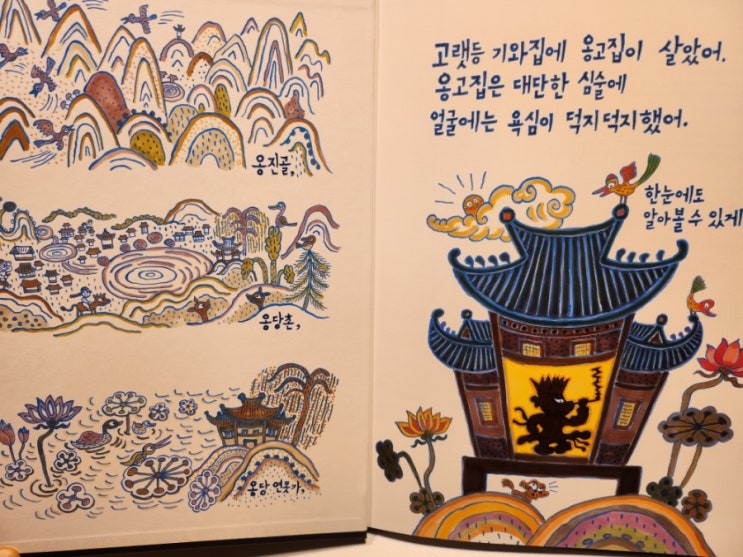 옹진골,
옹당촌,
옹당 연못가,
고랫등 기와집에 옹고집이 살았어.
옹고집은 대단한 심술에
얼굴에는 욕심이 덕지덕지했어.
한눈에도
알아볼 수 있게